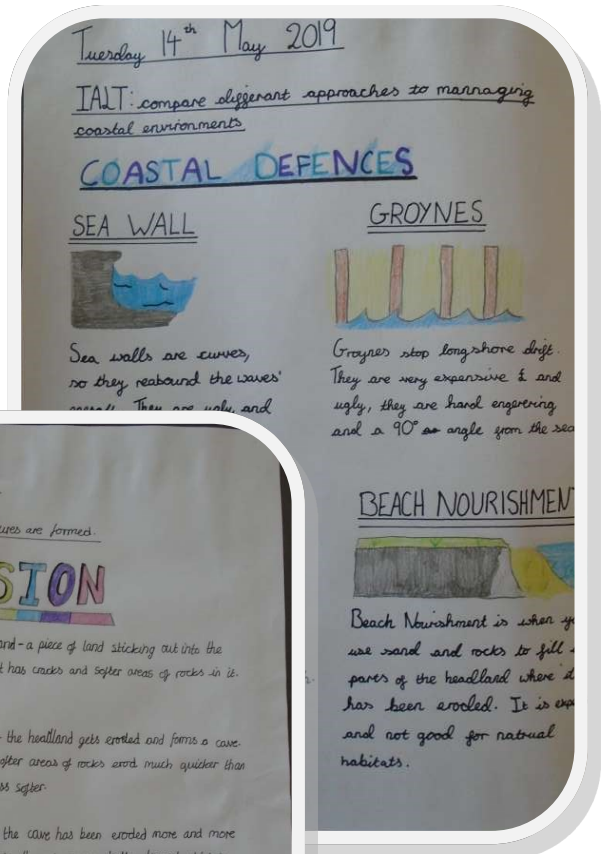 Tuesday 14th May 2019
IALT: compare differant approaches to mannaging
coastal environments
COASTAL DEFENCES
SEA WALL
Sea walls are curves,
so they reabound the waves'
They are ugly, and
GROYNES
Groynes stop longshore drift.
They are very expensive £ and
ugly, they are hard engerering
and a 90° angle from the sea
BEACH NOURISHMENT
Beach Nourishment is when
use sand and rocks to fill
parts of the headland where
has been eroded. It is
and not good for natrual
habitats.
are formed.
SION
a piece of land sticking out into the
has cracks and softer areas of rocks in it.
the headland gets eroded and forms a cave.
areas of rocks erod much quicker than
softer.
the cave has been eroded more and more